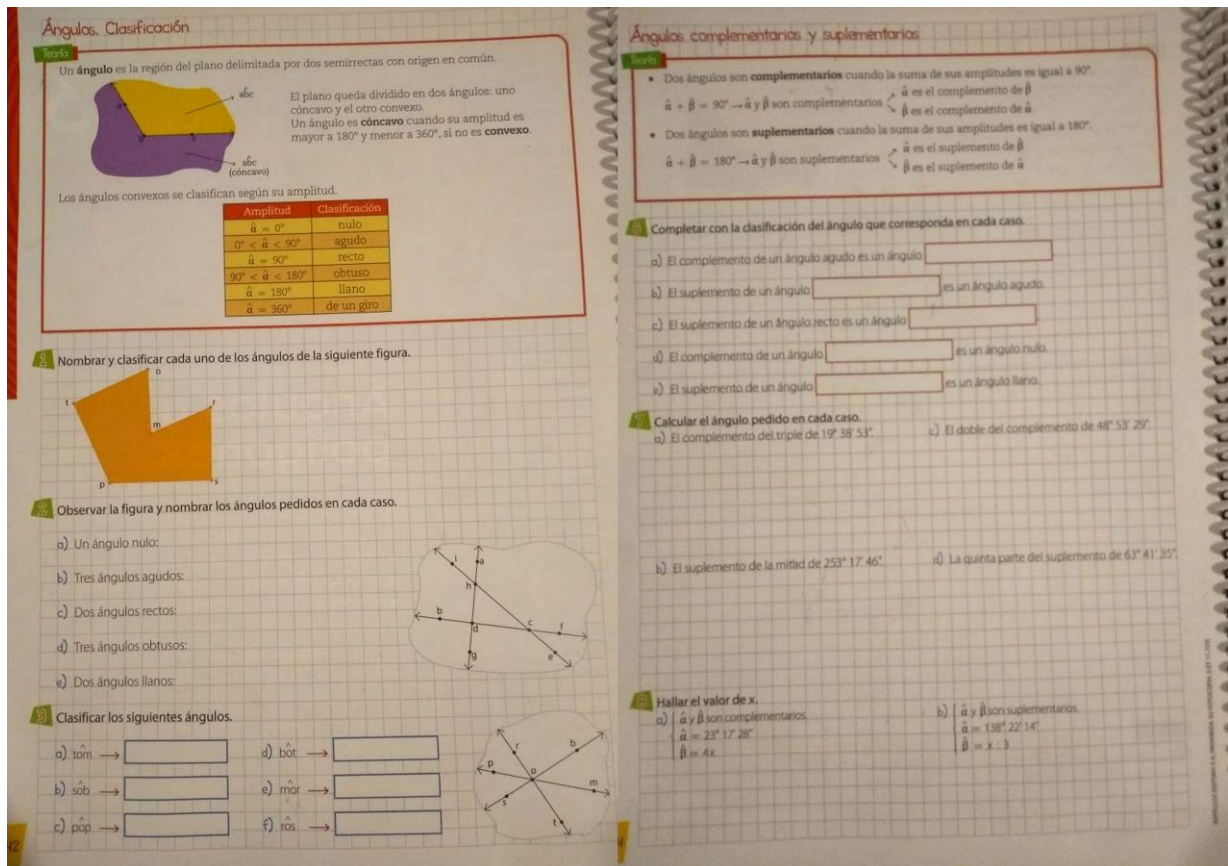 Ángulos. Clasificación
Teoría
Un ángulo es la región del plano delimitada por dos semirrectas con origen en común.
a
b
c
abĉ
abĉ
(cóncavo)
El plano queda dividido en dos ángulos: uno
cóncavo y el otro convexo.
Un ángulo es cóncavo cuando su amplitud es
mayor a 180° y menor a 360°, si no es convexo.
Los ángulos convexos se clasifican según su amplitud.
Amplitud Clasificación
α̂ = 0° nulo
0° < α̂ < 90° agudo
α̂ = 90° recto
90° < α̂ < 180° obtuso
α̂ = 180° llano
α̂ = 360° de un giro
1 Nombrar y clasificar cada uno de los ángulos de la siguiente figura.
o
t
r
m
p
s
2 Observar la figura y nombrar los ángulos pedidos en cada caso.
a) Un ángulo nulo:
b) Tres ángulos agudos:
c) Dos ángulos rectos:
d) Tres ángulos obtusos:
e) Dos ángulos llanos:
i
a
h
b
d
c
f
g
e
3 Clasificar los siguientes ángulos.
a) tôm →
d) bôt →
b) sôb →
e) môr →
c) pôp →
f) rôs →
r
b
p
o
m
s
t
12
Ángulos complementarios y suplementarios
Teoría
• Dos ángulos son complementarios cuando la suma de sus amplitudes es igual a 90°.
α̂ + β̂ = 90° → α̂ y β̂ son complementarios
α̂ es el complemento de β̂
β̂ es el complemento de α̂
• Dos ángulos son suplementarios cuando la suma de sus amplitudes es igual a 180°.
α̂ + β̂ = 180° → α̂ y β̂ son suplementarios
α̂ es el suplemento de β̂
β̂ es el suplemento de α̂
Completar con la clasificación del ángulo que corresponda en cada caso.
a) El complemento de un ángulo agudo es un ángulo
b) El suplemento de un ángulo es un ángulo agudo.
c) El suplemento de un ángulo recto es un ángulo
d) El complemento de un ángulo es un ángulo nulo.
e) El suplemento de un ángulo es un ángulo llano.
7 Calcular el ángulo pedido en cada caso.
a) El complemento del triple de 19° 38' 53".
c) El doble del complemento de 48° 53' 29".
b) El suplemento de la mitad de 253° 17' 46".
d) La quinta parte del suplemento de 63° 41' 35".
Hallar el valor de x.
a) α̂ y β̂ son complementarios.
α̂ = 23° 17' 28"
β̂ = 4x
b) α̂ y β̂ son suplementarios.
α̂ = 138° 22' 14"
β̂ = x : 3